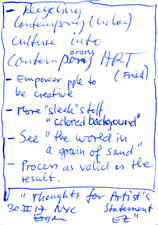 - Recycling
Contemporary (urban)
Culture into
Contemporary ART
- Empower pple to (Fried)
be creative
- More "sleek" stuff
"colored background"
- See "the world in
a grain of sand"
- Process as valid as the
result.
"Thoughts for Artist's
30 II 17 NYC Statement
EZ"